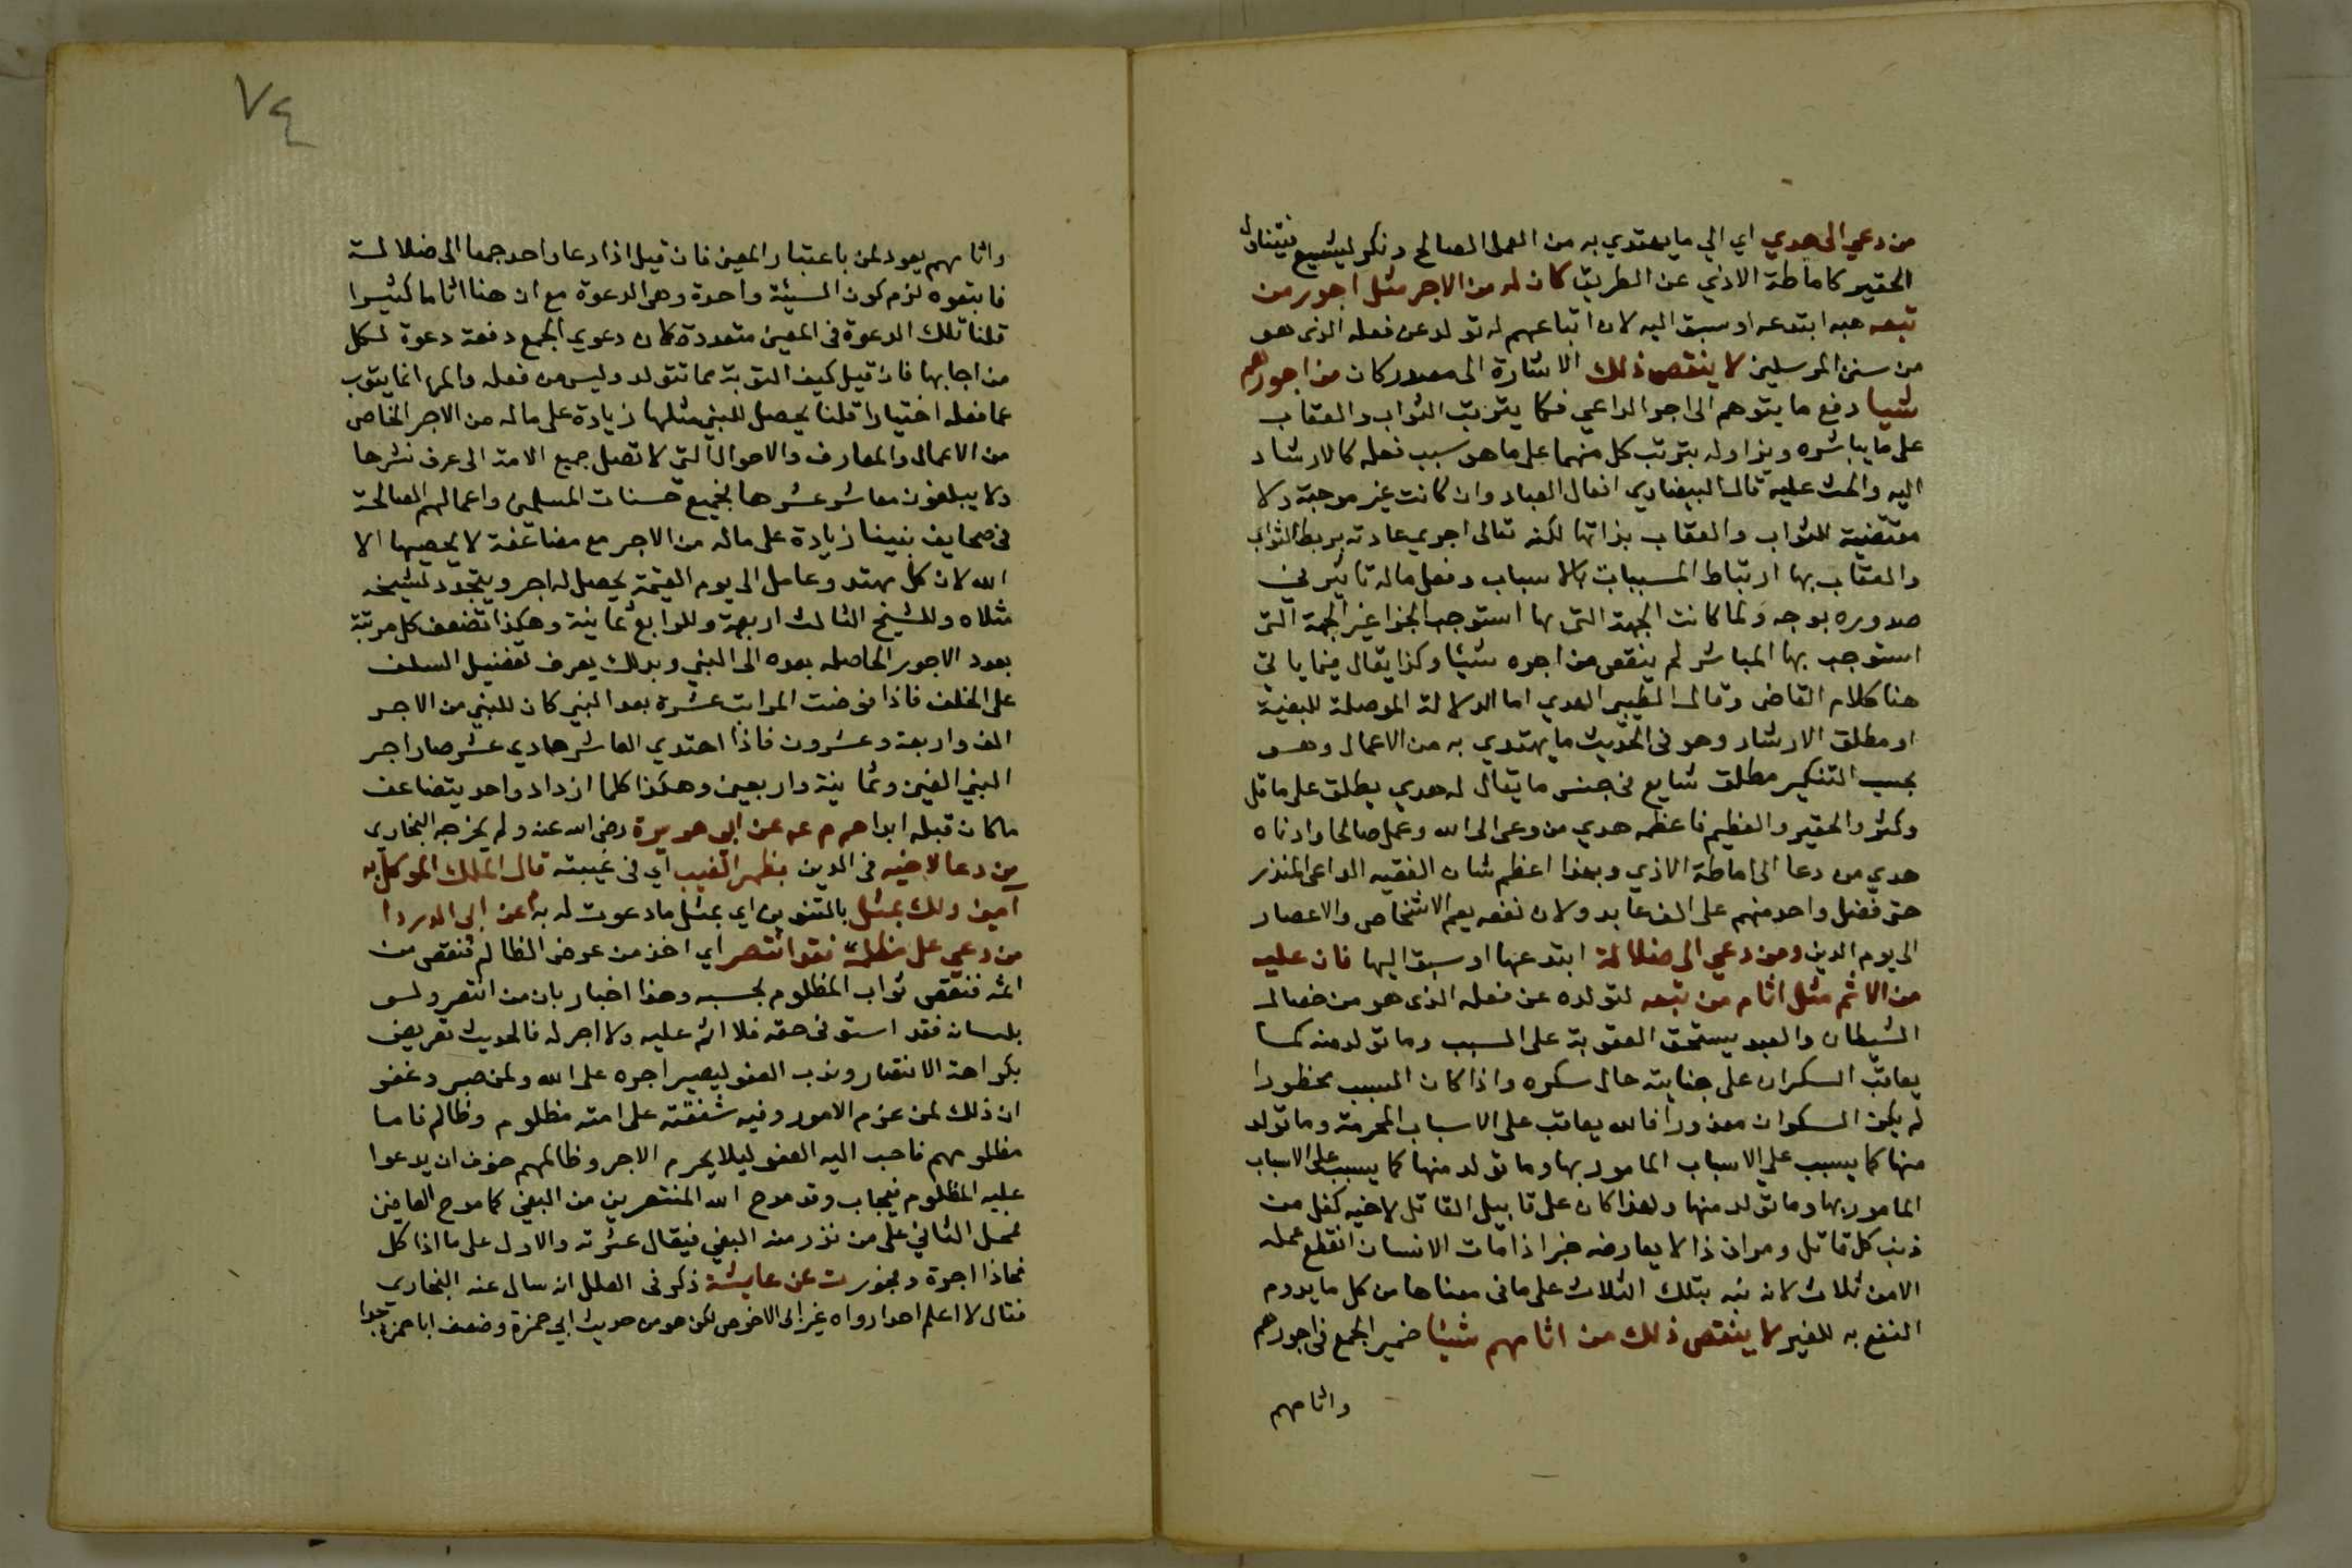 من دعي الى هدي اي الي ما يهتدي به من العمل الصالح ونكر ليشيع فيتناول
الحقير كاماطة الاذي عن الطريق كان له من الاجر مثل اجور من
تبعه هبه ابتدعه او سبق اليه لان اتباعهم له تولد عن فعله الذى هو
من سنن المرسلين لا ينقص ذلك الاشارة الى مصدر كان من اجورهم
شيا دفع ما يتوهم الى اجر الداعي فكما يترتب الثواب والعقاب
على ما يباشره ويزاوله يترتب كل منهما على ما هو سبب فعله كالارشاد
اليه والحث عليه قال البيضاوي افعال العباد وان كانت غير موجبة ولا
مقتضية للثواب والعقاب بذاتها لكنه تعالى اجري عادته بربط الثواب
والعقاب بها ارتباط المسببات بالاسباب وفعل ماله تاثير في
صدوره بوجه ولما كانت الجهة التى بها استوجب الجزا غير الجهة التى
استوجب بها المباشر لم ينقص من اجره شيئا وكذا يقال فيما ياتي
هنا كلام القاضى وقال الطيبي الهدي اما الدلالة الموصلة للبغية
او مطلق الارشاد وهو فى الحديث ما يهتدي به من الاعمال وهو
بحسب التنكير مطلق شايع فى جنس ما يقال له هدي يطلق على ما قل
وكثر والحقير والعظيم فاعظمه هدي من دعى الى الله وعمل صالحا وادناه
هدي من دعا الى اماطة الاذي وبهذا اعظم شان الفقيه الداعى المنذر
حتى فضل واحد منهم على الف عابد ولان نفعه يعم الاشخاص والاعصار
الى يوم الدين ومن دعي الى ضلالة ابتدعها او سبق اليها فان عليه
من الاثم مثل اثام من تبعه لتولده عن فعله الذى هو من خصال
الشيطان والعبد يستحق العقوبة على السبب وما تولد منه كما
يعاقب السكران على جنايته حال سكره واذا كان السبب محظورا
لم يكن السكران معذورا فالله يعاقب على الاسباب المحرمة وما تولد
منها كما يسبب علي الاسباب المامور بها وما تولد منها كما يسبب على الاسباب
المامور بها وما تولد منها ولهذا كان على قابيل القاتل لاخيه كفل من
ذنب كل قاتل ومر ان ذا لا يعارضه خبر اذا مات الانسان انقطع عمله
الا من ثلاث لانه نبه بتلك الثلاث على ما فى معناها من كل ما يدوم
النفع به للغير لا ينقص ذلك من اثامهم شيئا ضمير الجمع فى اجورهم
واثامهم
٧٤
واثامهم يعود لمن باعتبار المعين فان قيل اذا دعا واحد جمعا الى ضلالة
فاتبعوه لزم كون السيئة واحدة وهى الدعوة مع ان هنا اثاما كثيرا
قلنا تلك الدعوة فى المعين متعددة كان دعوي الجمع دفعة دعوة لكل
من اجابها فان قيل كيف التوبة مما تولد وليس من فعله والمرا انما يتوب
عما فعله اختيارا قلنا يحصل للنبي مثلها زيادة على ماله من الاجر الخاص
من الاعمال والمعارف والاحوال التى لا تصل جميع الامة الى عرف نشرها
ولا يبلغون معاشر عشرها فجميع حسنات المسلمين واعمالهم الصالحة
فى صحايف نبينا زيادة على ماله من الاجر مع مضاعفة لا يحصيها الا
الله لان كل مهتد وعامل الى يوم القيمة يحصل له اجر ويتجدد لشيخه
مثلاه وللشيخ الثالث اربعة وللرابع ثمانية وهكذا تضعف كل مرتبة
بعدد الاجور الحاصله بعده الى النبي وبذلك يعرف تفضيل السلف
على الخلف فاذا فرضت المراتب عشرة بعد النبي كان للنبي من الاجر
الف واربعة وعشرون فاذا اهتدي العاشر حادي عشر صار اجر
النبي الفين وثمانية واربعين وهكذا كلما ازداد واحد يتضاعف
ما كان قبله ابدا هم م عه عن ابى هريرة رضى الله عنه ولم يخرجه البخاري
من دعا لاخيه فى الدين بظهر الغيب اي فى غيبته قال الملك الموكل به
امين ولك بمثل بالتنوين اي بمثل ما دعوت له به م عن ابى الدردا
من دعي على من ظلمه فقد انتصر اي اخذ من عرض الظالم فنقص من
اثمه فنقص ثواب المظلوم بحسبه وهذا اخبار بان من انتصر ولو
بلسان فقد استوفى حقه فلا اثم عليه ولا اجر له فالحديث تعريض
بكراهة الانتصار وندب العفو ليصير اجره على الله ولمن صبر وغفر
ان ذلك لمن عزم الامور وفيه شفقته على امته مظلوم وظالم فاما
مظلومهم فاحب اليه العفو ليلا يحرم الاجر وظالمهم خوف ان يدعوا
عليه المظلوم فيجاب وقد مدح الله المنتصرين من البغي كما مدح العافين
فحمل الثاني على من ندر منه البغي فيقال عثرته والاول على ما اذا كل
فماذا اجرة وفجور ت عن عايشة ذكر فى العلل انه سال عنه البخاري
فقال لا اعلم احدا رواه غير ابى الاحوص لكن هو من حديث ابي حمزة وضعف ابا حمزة جدا